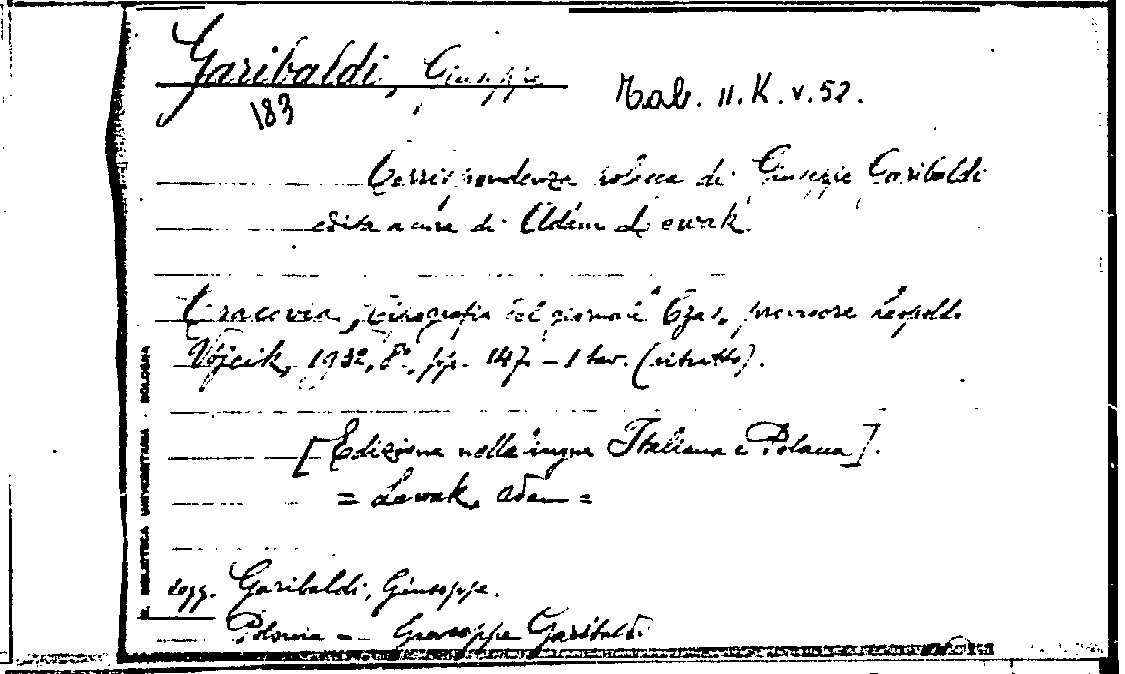 Garibaldi, Giuseppe
183
Tab. II. K. v. 52.
Corrispondenza polacca di Giuseppe Garibaldi
edita a cura di Adam Lewak.
Cracovia, Tipografia del giornale "Czas", provisore Leopoldo
Wójcik, 1932, 8°, pp. 147 - 1 tav. (ritratto).
[Edizione nella lingua Italiana e Polacca].
= Lewak, Adam =
R. BIBLIOTECA UNIVERSITARIA - BOLOGNA
sogg. Garibaldi, Giuseppe.
Polonia - - Giuseppe Garibaldi